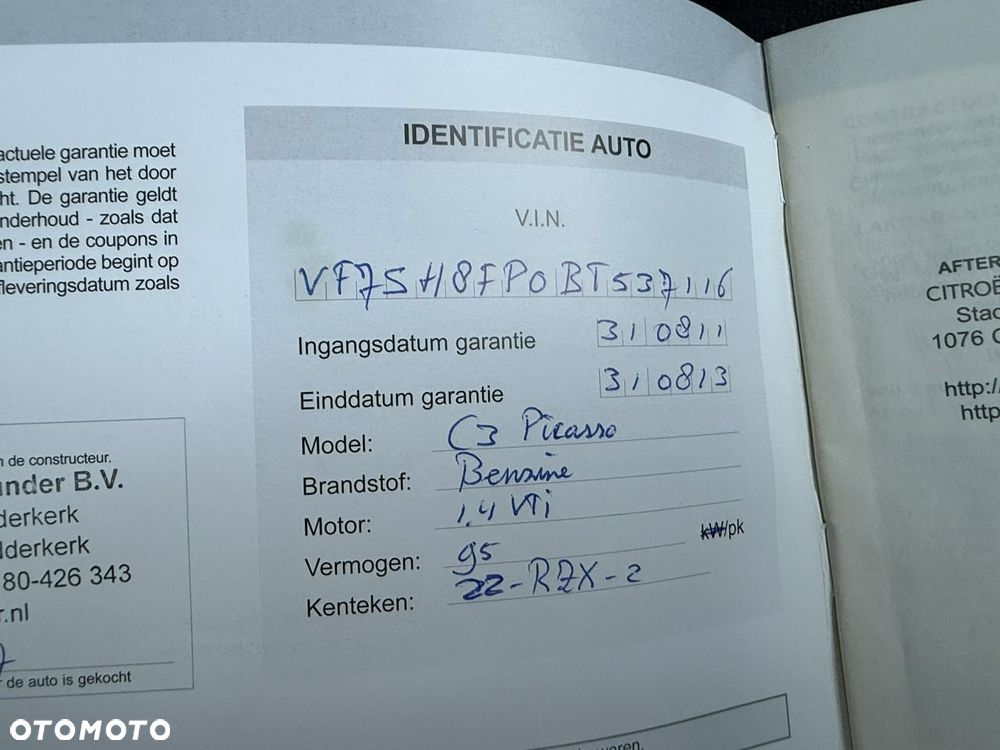 actuele garantie moet
stempel van het door
ht. De garantie geldt
nderhoud - zoals dat
en - en de coupons in
antieperiode begint op
fleveringsdatum zoals
n de constructeur.
nder B.V.
derkerk
dderkerk
80-426 343
r.nl
de auto is gekocht
IDENTIFICATIE AUTO
V.I.N.
VF7SH8FP0BT537116
Ingangsdatum garantie 310811
Einddatum garantie 310813
Model: C3 Picasso
Brandstof: Benzine
Motor: 1,4 VTi
Vermogen: 95 kW/pk
Kenteken: 22-RZX-2
AFTER
CITROË
Stac
1076
http:/
http
OTOMOTO